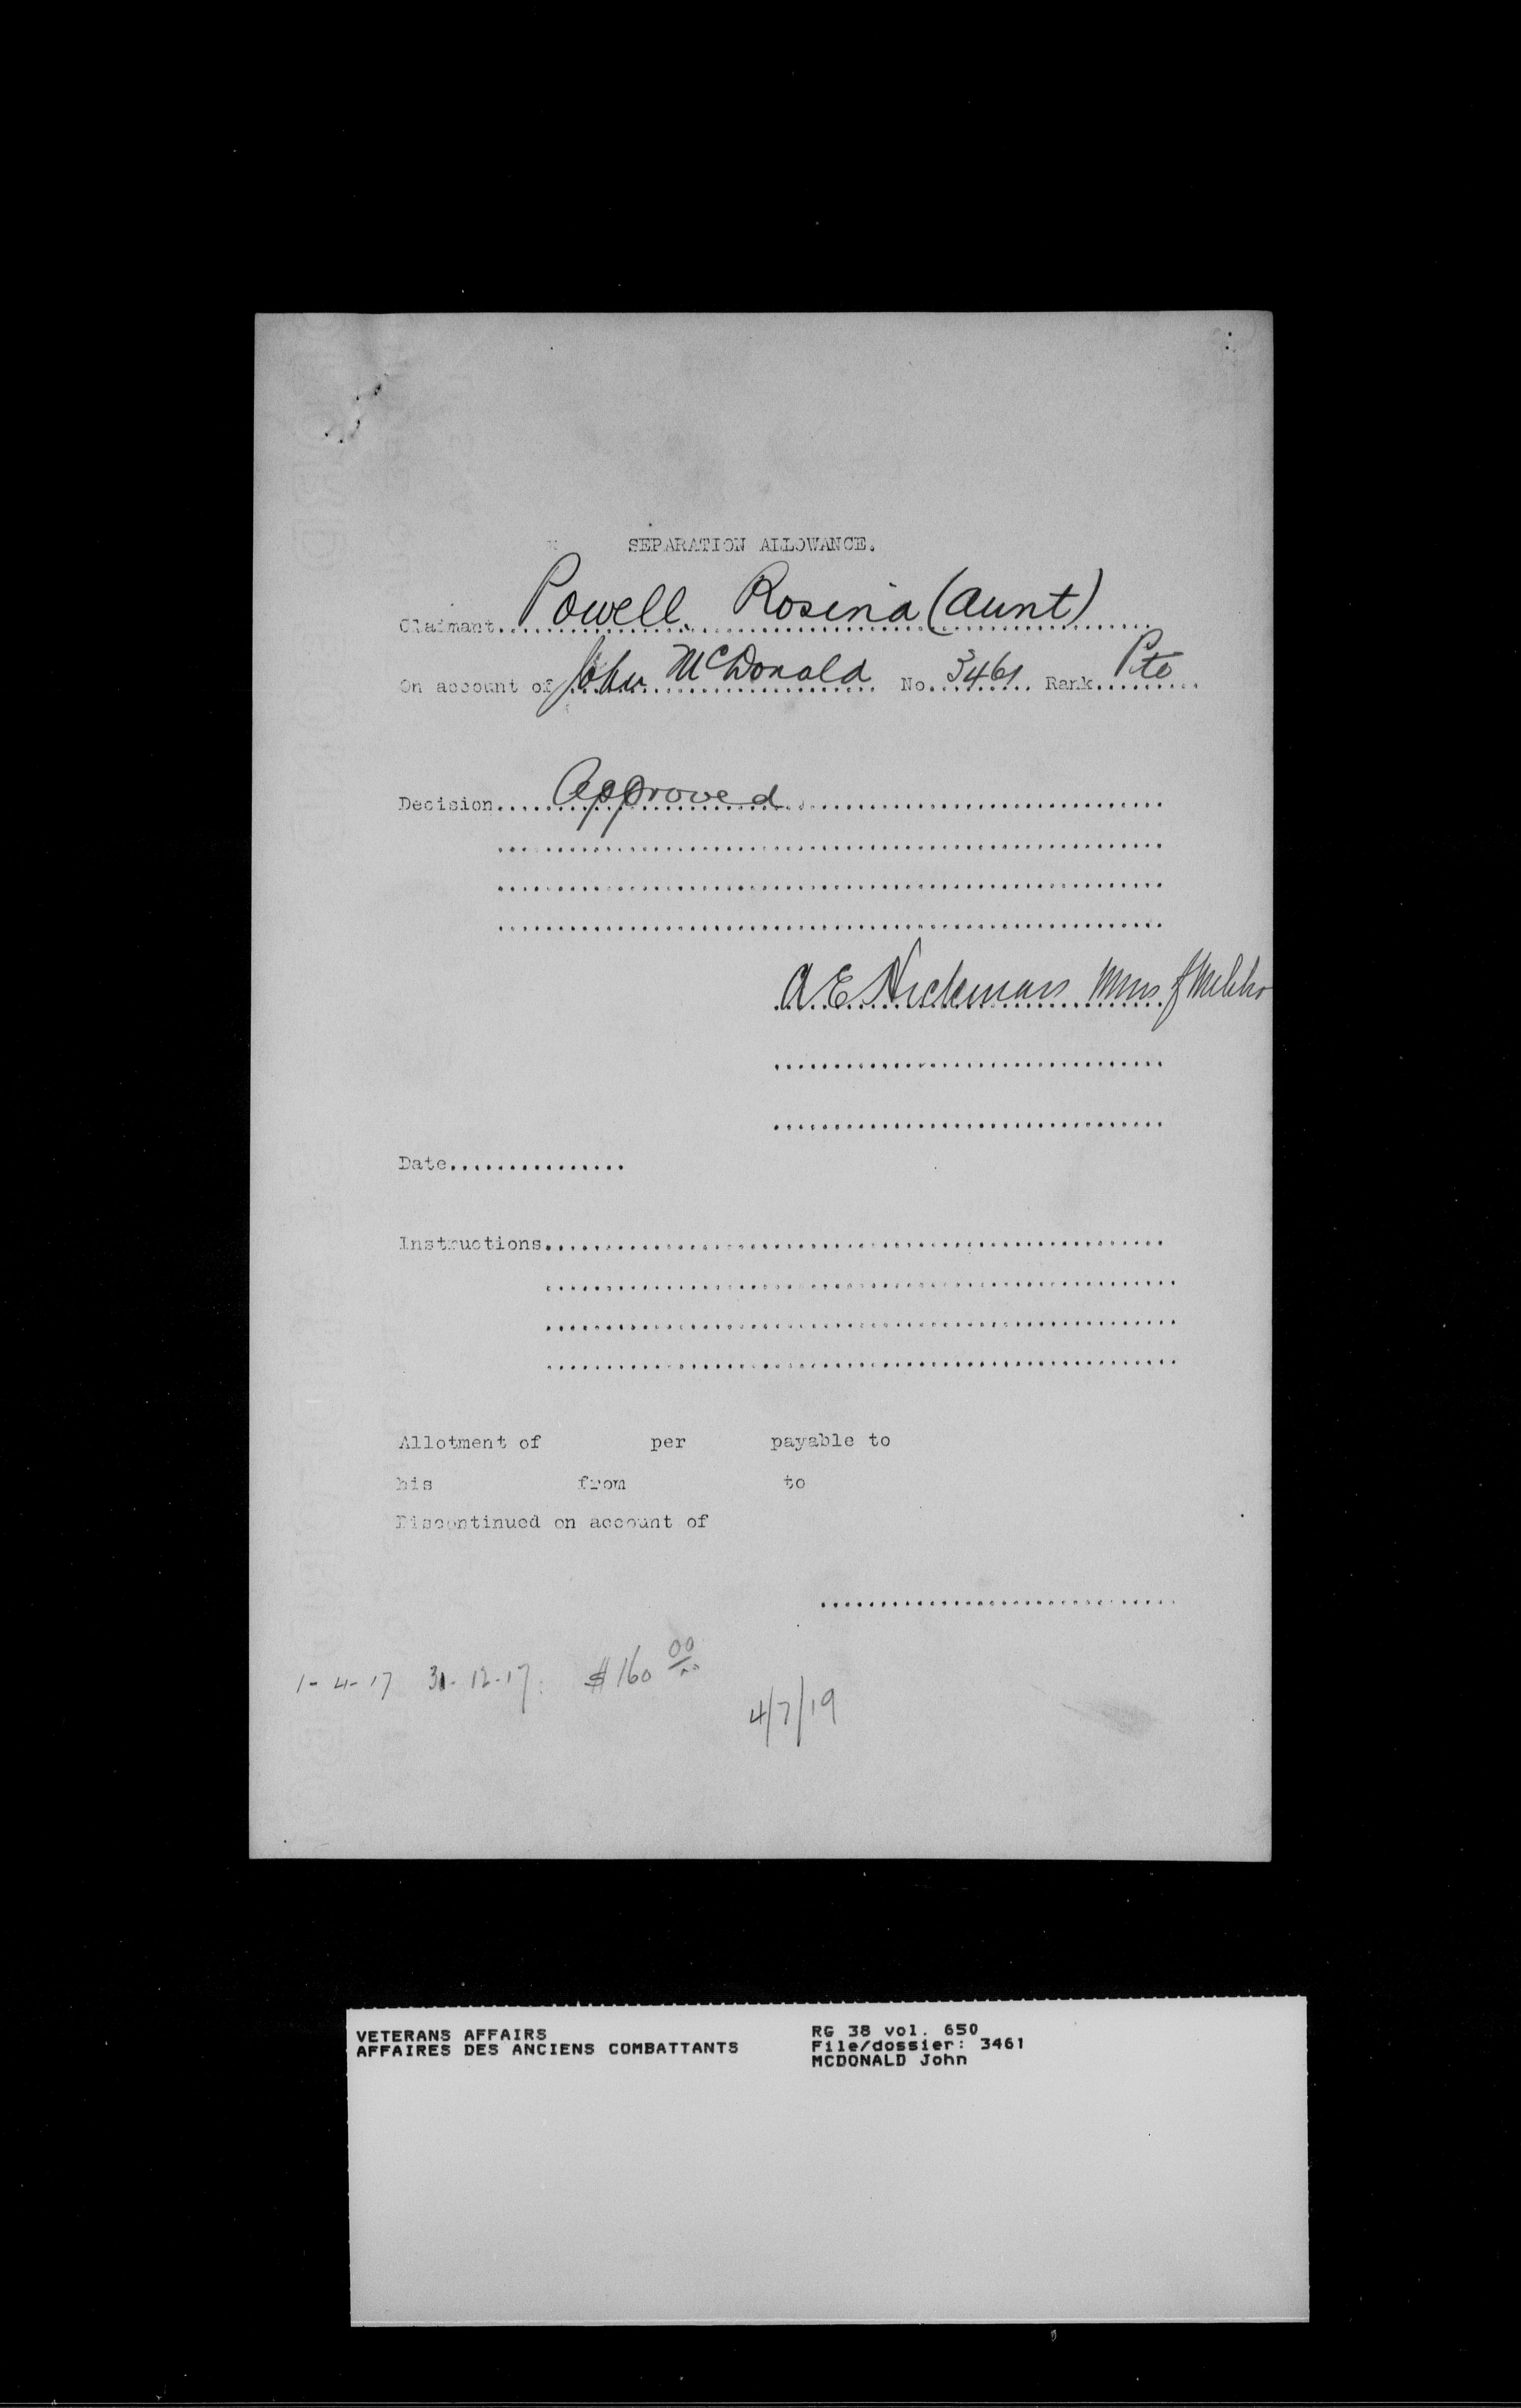 SEPARATION ALLOWANCE.
Claimant Powell, Rosina (Aunt)
On account of John McDonald No. 3461 Rank Pte
Decision Approved
A E Hickman Min of Militia
Date
Instructions
Allotment of per payable to
his from to
Discontinued on account of
1-4-17 31-12-17. $160 00/00
4/7/19
VETERANS AFFAIRS
AFFAIRES DES ANCIENS COMBATTANTS
RG 38 vol. 650
File/dossier: 3461
MCDONALD John